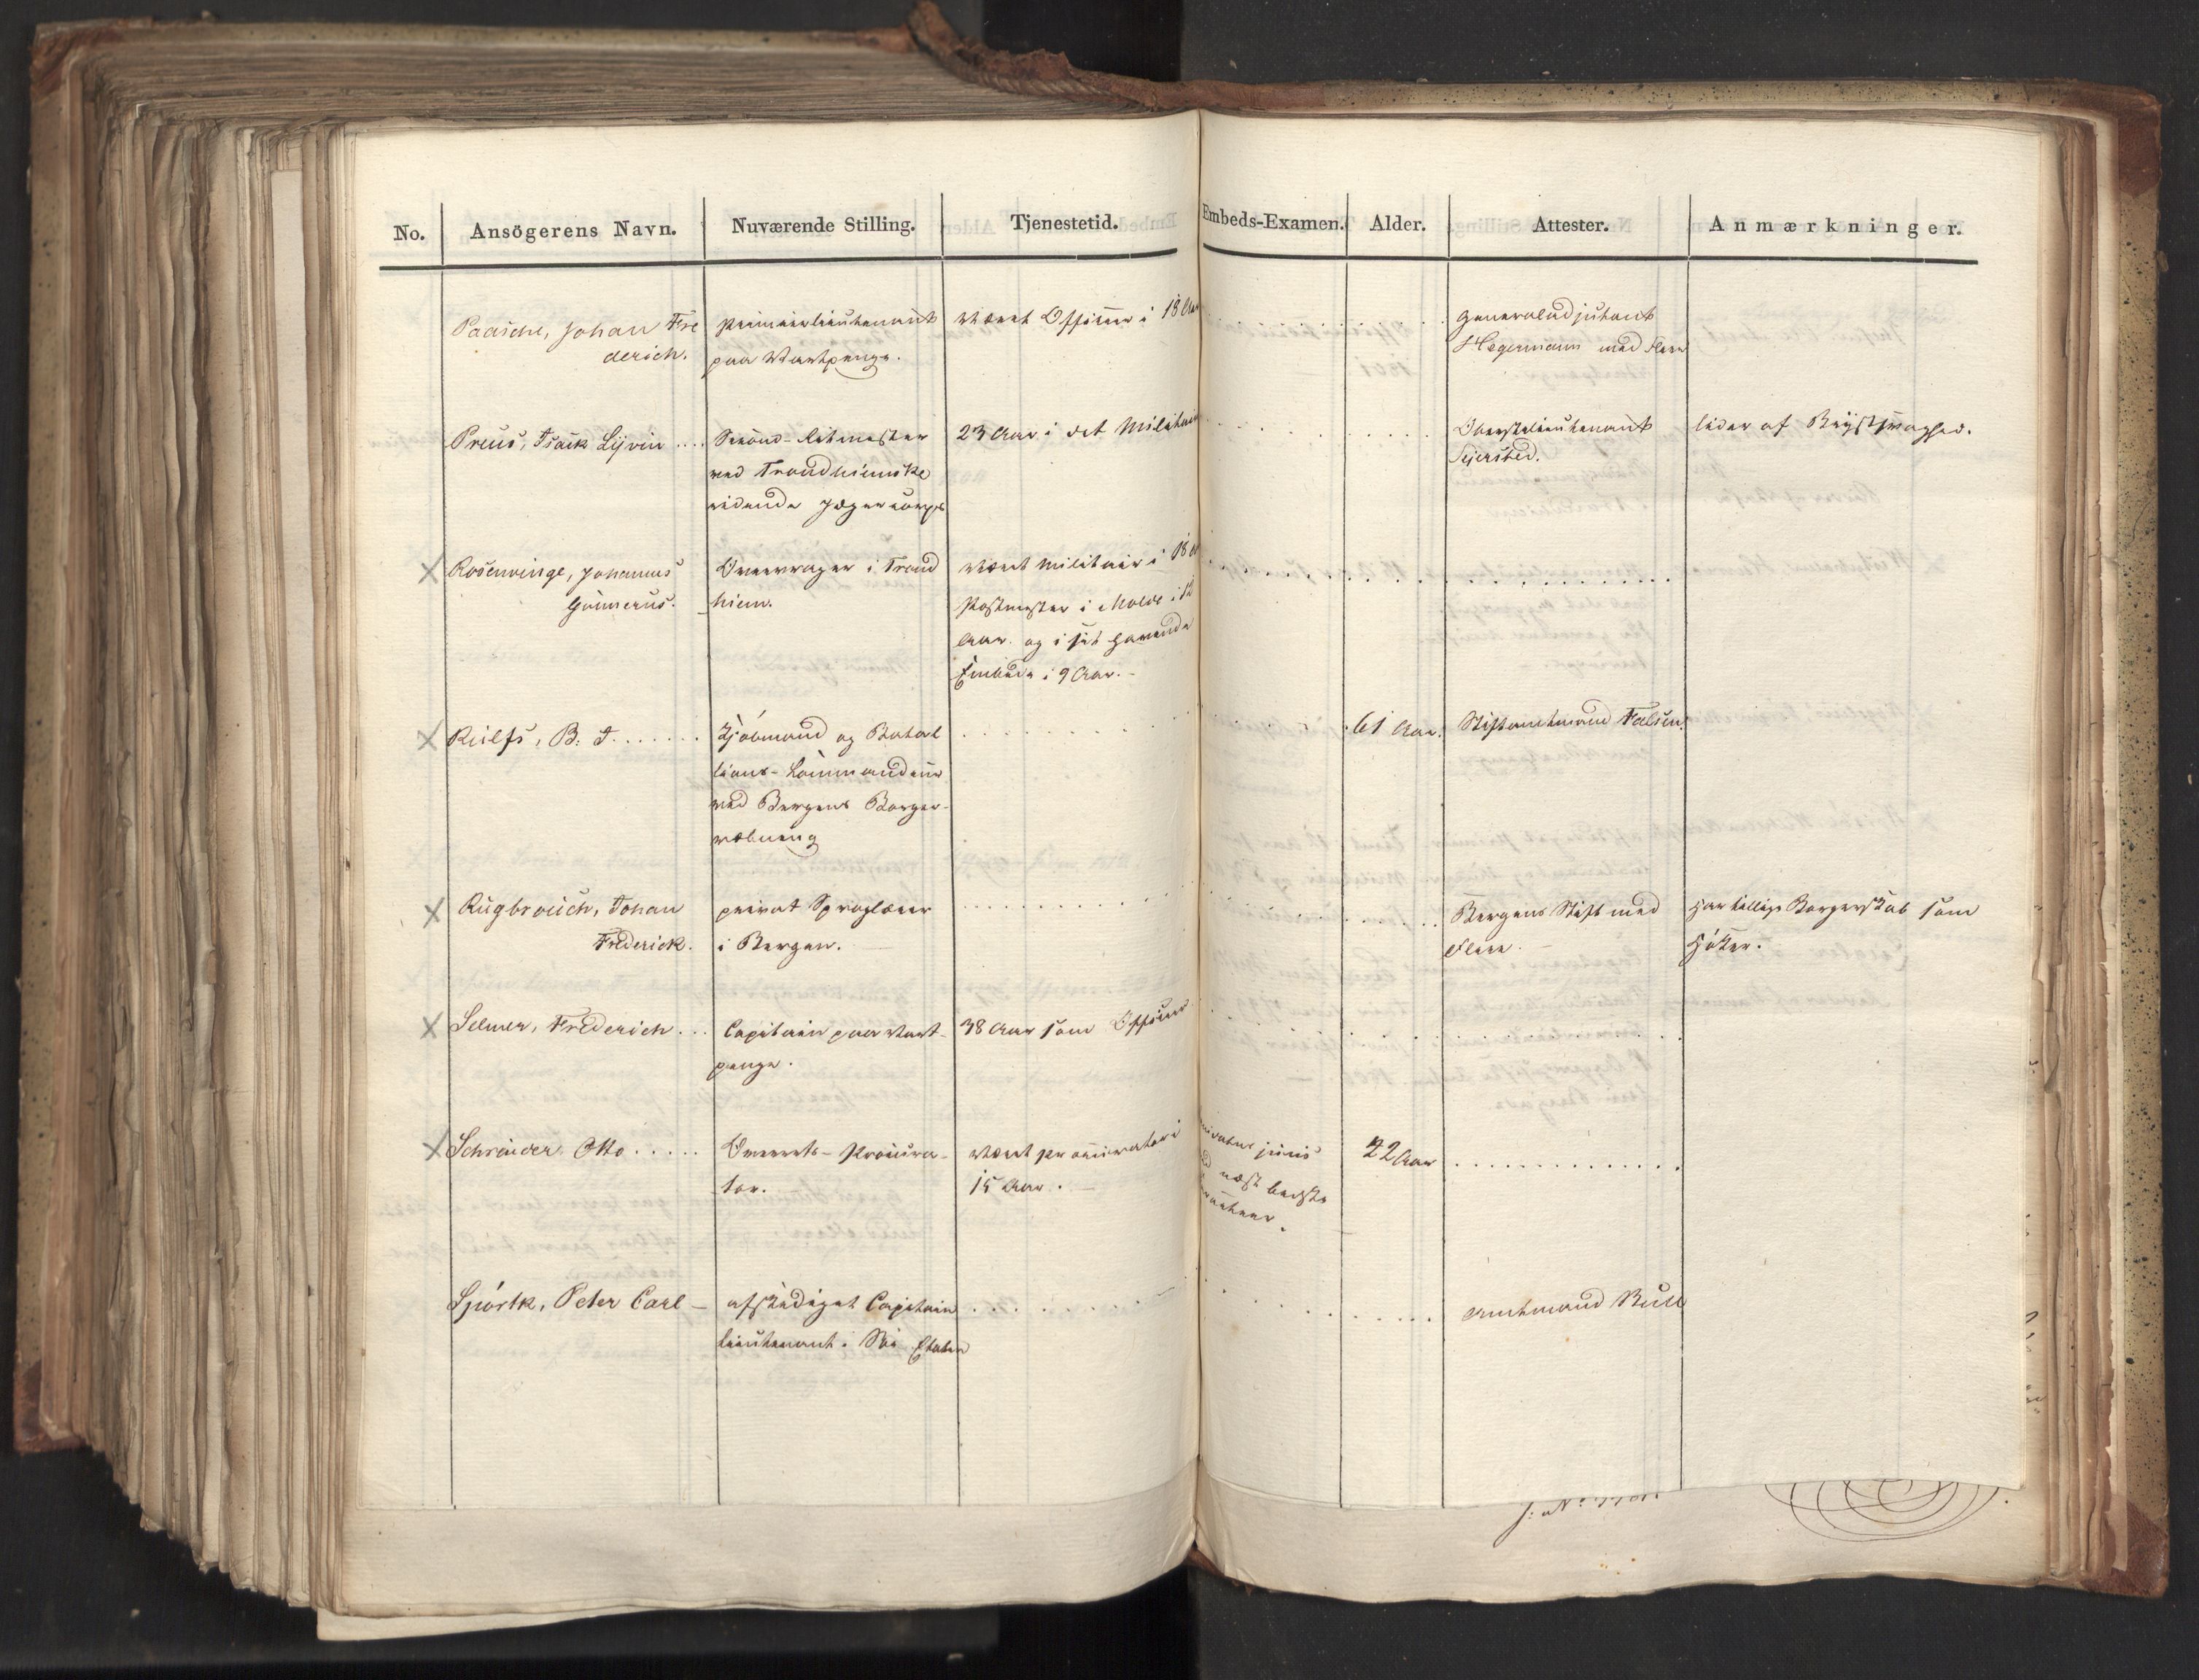 No. Ansögerens Navn. Nuværende Stilling. Tjenestetid. Embeds-Examen. Alder. Attester. Anmærkninger.
Paasche, Johan Fre
derich.
Premierlieutenant
paa Vartpenge.
været Officier i 18 Aar
Generaladjutant
Hegermann med Flere
Preus, Isack Lyvin ....
Second-Ritmester
ved Trondhiemske
ridende Jægercorps
23 Aar i det Militaire
Oberstelieutenant
Sejersted.
lider af Brystsvaghed.
X Rosenvinge, Johannes
Gunnerus.
Overvrager i Trond
hiem.
været militair i 18
Postmester i Molde i 12
Aar. og i sit havende
Embede i 9 Aar.
X Rulfs, B. J. ......
Kjöbmand og Batal
lions-Commandeur
ved Bergens Borger-
væbning
61 Aar.
Stiftamtmand Falsen.
X Rugbrouch, Johan
Frederick.
privat Sproglærer
i Bergen.
Bergens Stift med
Flere.
har tillige Borgerskab som
Höker.
X Selmer, Frederich ...
Capitain paa Vart-
penge.
38 Aar som Officier
X Schrøder, Otto .....
Overrets-Procura-
tor.
været Procurator i
15 Aar.
juris
næst bedste
42 Aar
Spørck, Peter Carl -
afskediget Capitain
Lieutenant i Söe Etaten
Amtmand Bull